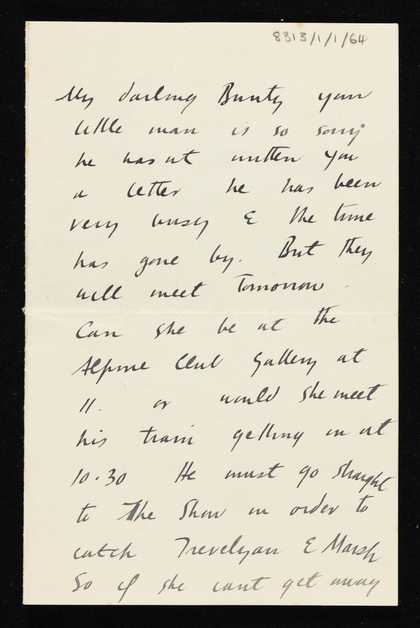 8313/1/1/64
My darling Bunty your
little man is so sorry
he hasnt written you
a letter he has been
very busy & the time
has gone by. But they
will meet tomorrow.
Can she be at the
Alpine Club Gallery at
11. or would she meet
his train getting in at
10.30 He must go straight
to the Show in order to
catch Trevelyan & Marsh
So if she cant get away